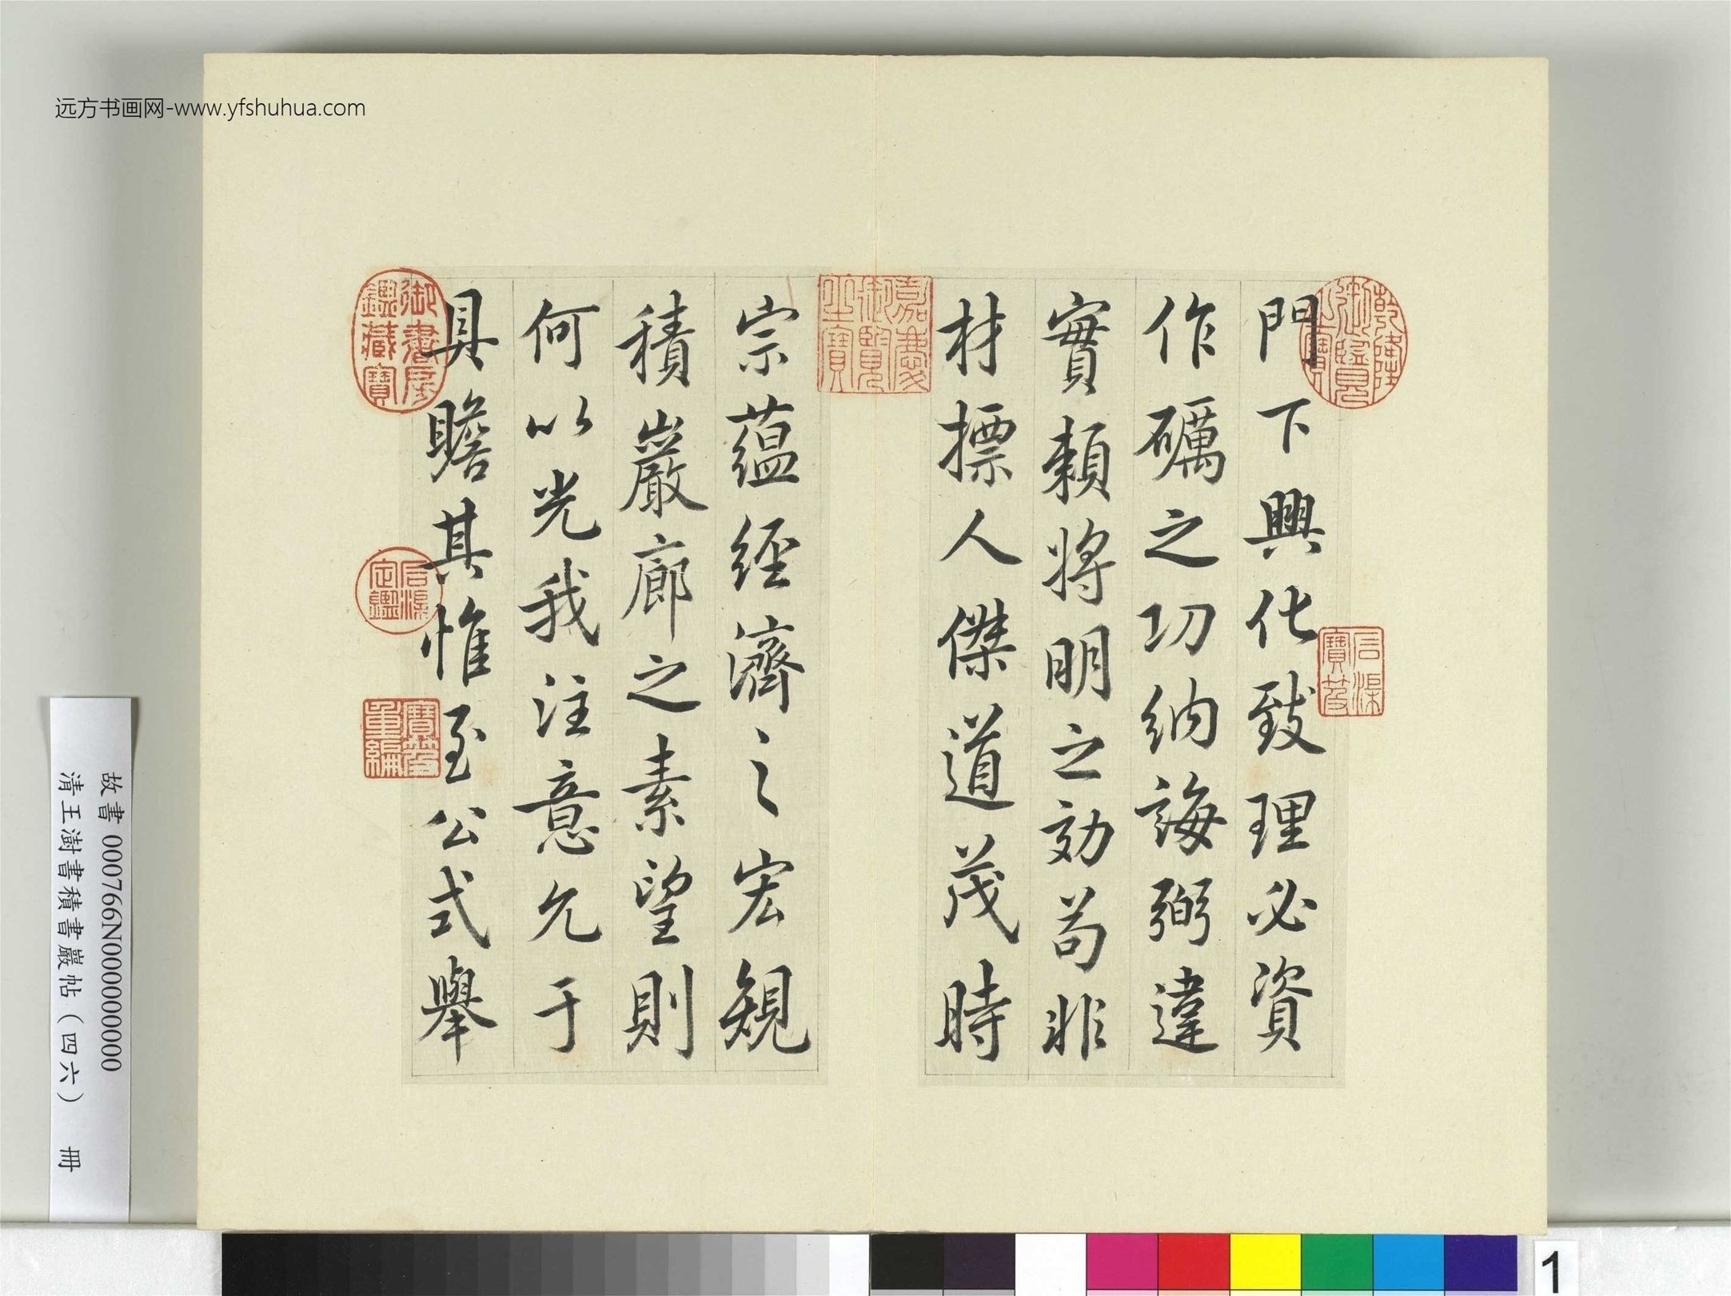 远方书画网-www.yfshuhua.com
門下興化致理必資
作礪之功納誨弼違
實賴將明之効苟非
材標人傑道茂時
宗蘊經濟之宏規
積巖廊之素望則
何以光我注意允于
具瞻其惟至公式舉
乾隆御覽之寶
石渠寶笈
嘉慶御覽之寶
御書房鑑藏寶
石渠定鑑
寶笈重編
故書 000766N000000000
清王澍書積書巖帖（四六） 冊
1